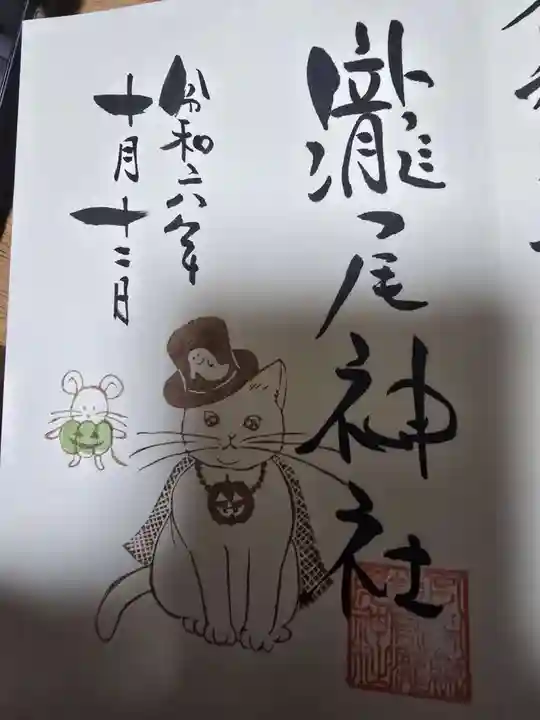 瀧尾神社
令和六年
十月十二日